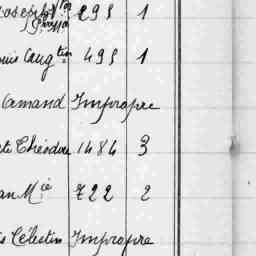 Joseph Vtor 295 1
ouis Aug tin 495 1
Camand Impropre
Théodore 1484 3
an Mie 722 2
is Célestin Impropre